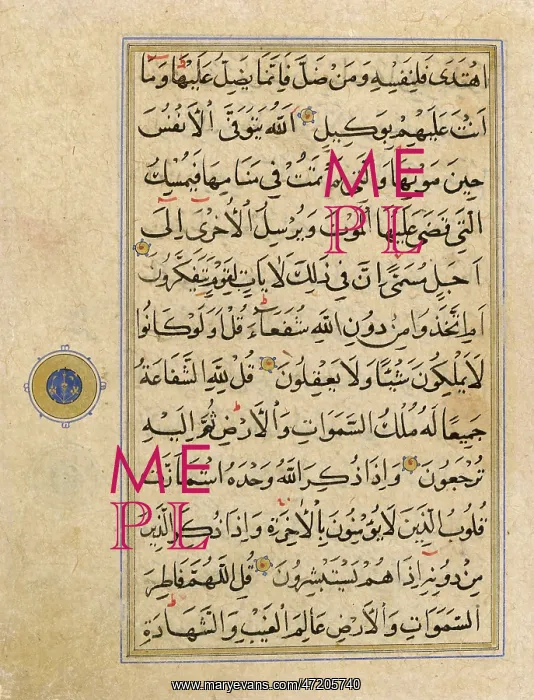 اهْتَدَى فَلِنَفْسِهِ وَمَنْ ضَلَّ فَإِنَّمَا يَضِلُّ عَلَيْهَا وَمَا
اَنْتَ عَلَيْهِمْ بِوَكِيلٍ اَللّٰهُ يَتَوَفَّى الْاَنْفُسَ
حِينَ مَوْتِهَا وَالَّتِي لَمْ تَمُتْ فِي مَنَامِهَا فَيُمْسِكُ
الَّتِي قَضَى عَلَيْهَا الْمَوْتَ وَيُرْسِلُ الْاُخْرَى اِلَى
اَجَلٍ مُسَمًّى اِنَّ فِي ذٰلِكَ لَاٰيَاتٍ لِقَوْمٍ يَتَفَكَّرُونَ
اَمِ اتَّخَذُوا مِنْ دُونِ اللّٰهِ شُفَعَاءَ قُلْ اَوَلَوْ كَانُوا
لَا يَمْلِكُونَ شَيْئًا وَلَا يَعْقِلُونَ قُلْ لِلّٰهِ الشَّفَاعَةُ
جَمِيعًا لَهُ مُلْكُ السَّمَوَاتِ وَالْاَرْضِ ثُمَّ اِلَيْهِ
تُرْجَعُونَ وَاِذَا ذُكِرَ اللّٰهُ وَحْدَهُ اشْمَاَزَّتْ
قُلُوبُ الَّذِينَ لَا يُؤْمِنُونَ بِالْاٰخِرَةِ وَاِذَا ذُكِرَ الَّذِينَ
مِنْ دُونِهِ اِذَا هُمْ يَسْتَبْشِرُونَ قُلِ اللّٰهُمَّ فَاطِرَ
السَّمَوَاتِ وَالْاَرْضِ عَالِمَ الْغَيْبِ وَالشَّهَادَةِ
ME
PL
ME
PL
www.maryevans.com/47205740